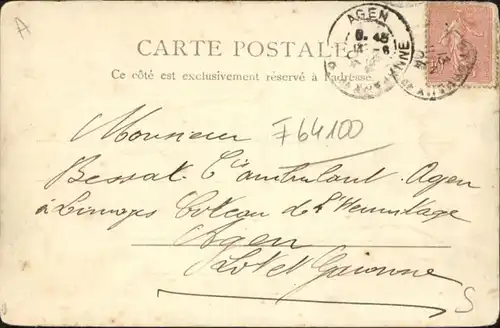 A
AGEN
CARTE POSTALE
Ce côté est exclusivement réservé à l'adresse.
F64100
Monsieur
Bessat L'ambulant Agen
à Limoges Coteau de L'Hermitage
Agen
Lot et Garonne
S